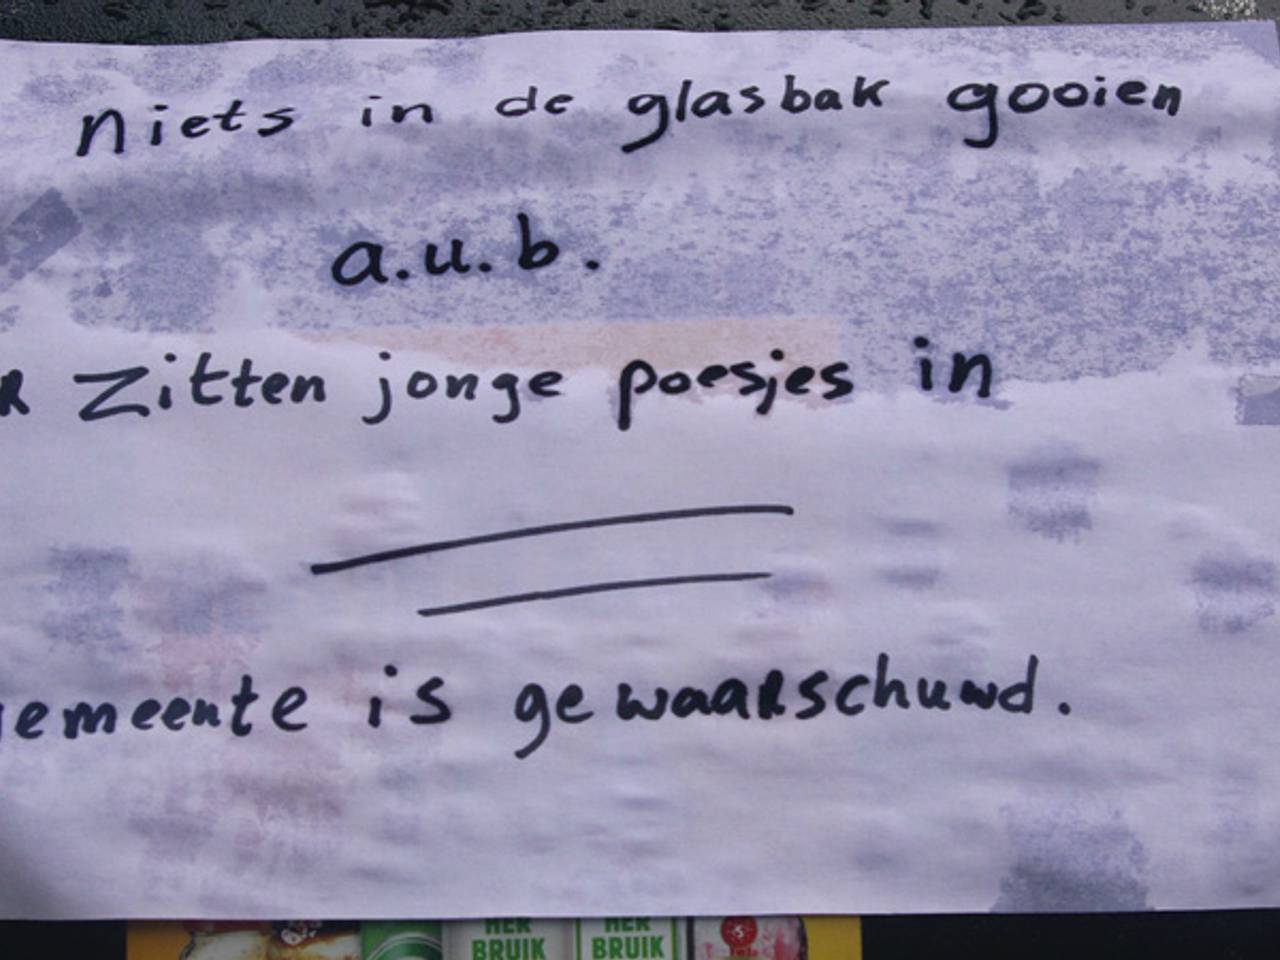 niets in de glasbak gooien
a.u.b.
R zitten jonge poesjes in
gemeente is gewaarschuwd.
HER HER
BRUIK BRUIK